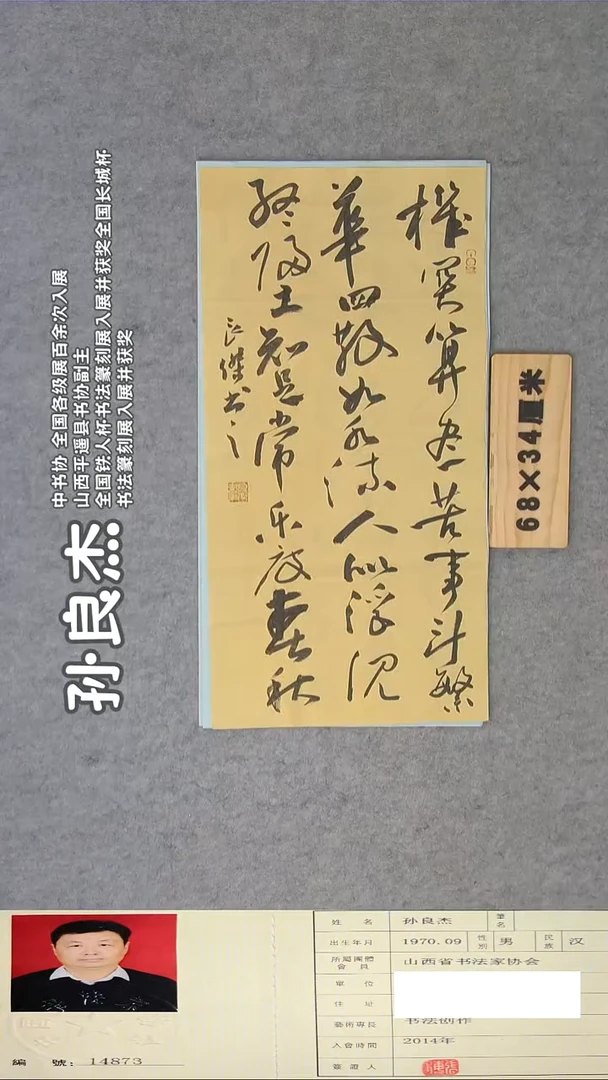 機関算盡苦争斗繁
華四散如水流人似浮沉
终歸土知足常乐度春秋
良傑书
68×34厘米
孙良杰
中书协 全国各级展百余次入展
山西平遥县书协副主
全国铁人杯书法篆刻展入展并获奖全国长城杯
书法篆刻展入展并获奖
編 號: 14873
姓 名 孙良杰 筆名
出生年月 1970.09 性別 男 民族 汉
所屬團體會員 山西省书法家协会
單 位
住 址
藝術專長 书法创作
入會時間 2014年
簽證人